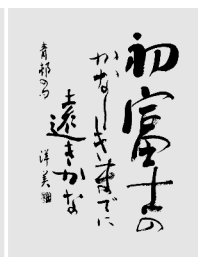 初富士の
かなしきまでに
遠きかな
青邨の句
洋美